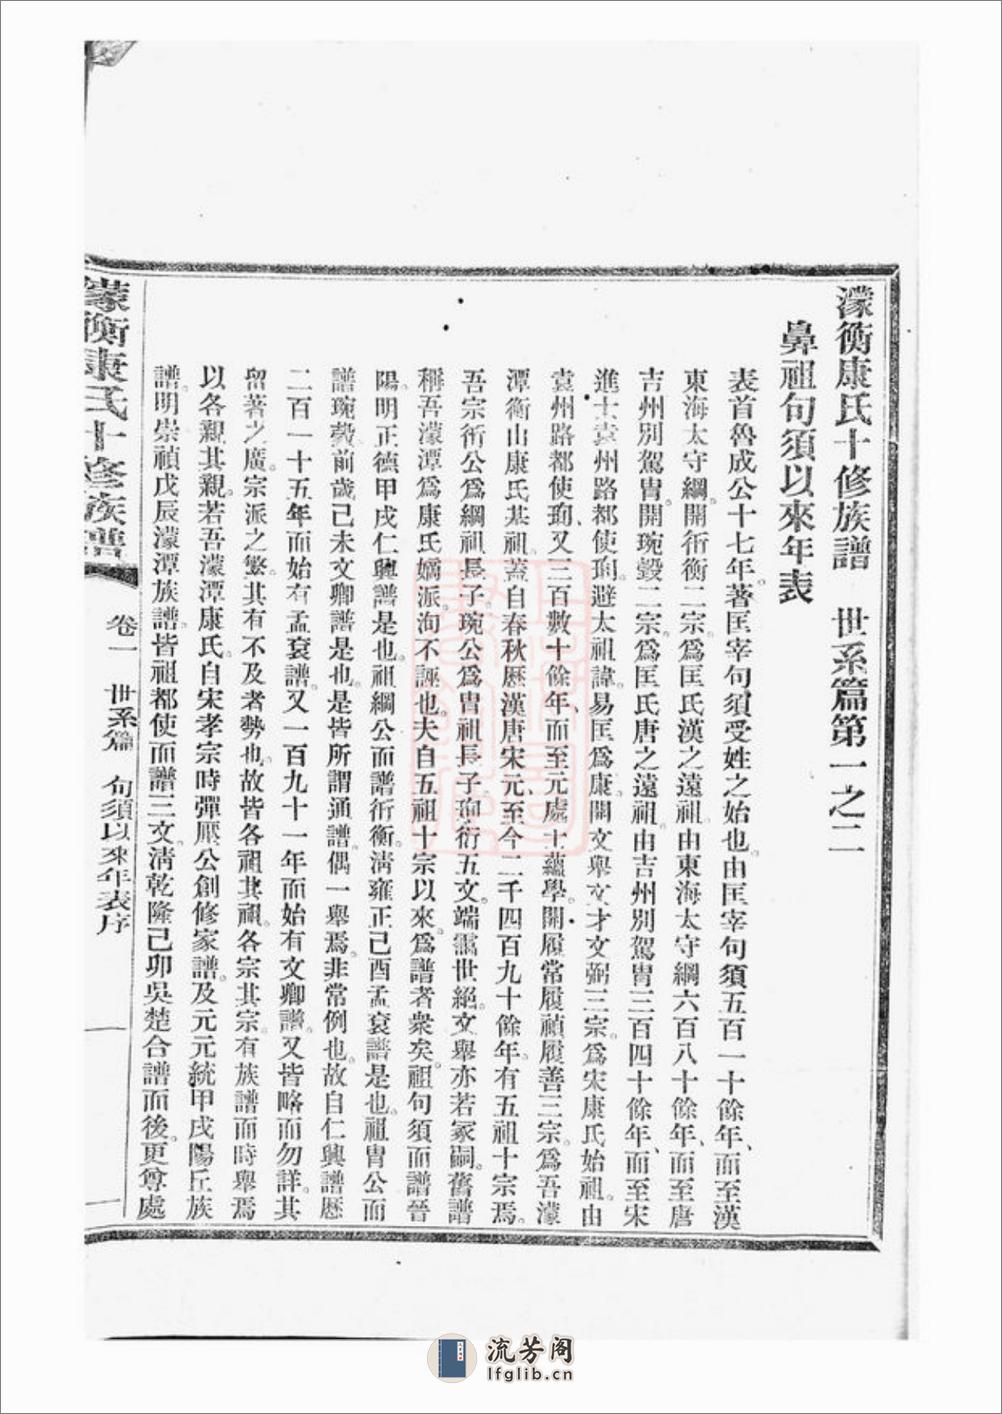 濛衡康氏十修族譜　世系篇第一之二
鼻祖句須以來年表
表首魯成公十七年著匡宰句須受姓之始也由匡宰句須五百一十餘年、而至漢
東海太守綱。開衍衡二宗。爲匡氏漢之遠祖。由東海太守綱六百八十餘年、而至唐
吉州別駕胄。開琬瑴二宗。爲匡氏唐之遠祖。由吉州別駕胄三百四十餘年、而至宋
進士袁州路都使珣。避太祖諱易匡爲康。開文舉文才文弼三宗。爲宋康氏始祖。由
袁州路都使珣、又三百數十餘年、而至元處士蘊學。開履常履禎履善三宗。爲吾濛
潭衡山康氏基祖。蓋自春秋歷漢唐宋元、至今二千四百九十餘年。有五祖十宗焉。
吾宗衍公爲綱祖長子琬公爲胄祖長子珣衍五文。端霭世絕。文舉亦若冢嗣。舊譜
稱吾濛潭爲康氏嫡派。洵不誣也。夫自五祖十宗以來。爲譜者衆矣。祖句須而譜晉
陽。明正德甲戌仁興譜是也。祖綱公而譜衍衡。淸雍正己酉孟袞譜是也。祖胄公而
譜琬瑴。前歲己未文卿譜是也。是皆所謂通譜。偶一舉焉。非常例也。故自仁興譜歷
二百一十五年而始有孟袞譜。又一百九十一年而始有文卿譜。又皆略而勿詳。其
留著之廣。宗派之繁。其有不及者勢也。故皆各祖其祖。各宗其宗。有族譜而時舉焉
以各親其親。若吾濛潭康氏。自宋孝宗時彈壓公創修家譜。及元元統甲戌陽丘族
譜。明崇禎戊辰濛潭族譜。皆祖都使而譜三文。淸乾隆己卯吳楚合譜而後。更尊處
濛衡康氏十修族譜
卷一　世系篇　句須以來年表序　一
流芳阁
lfglib.cn